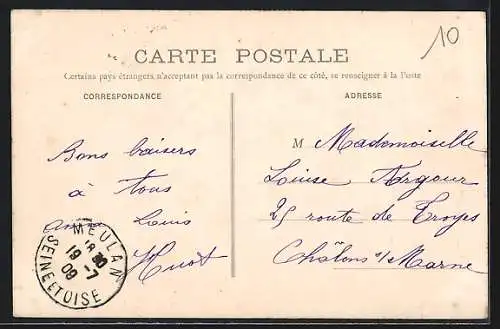 10
CARTE POSTALE
Certains pays étrangers n'acceptant pas la correspondance de ce côté, se renseigner à la Poste
CORRESPONDANCE
Bons baisers
à tous
Louis
Huot
MEULAN
18 30
19 -7
09
SEINE ET OISE
ADRESSE
M Mademoiselle
Louise Argour
25 route de Troyes
Châlons s/Marne